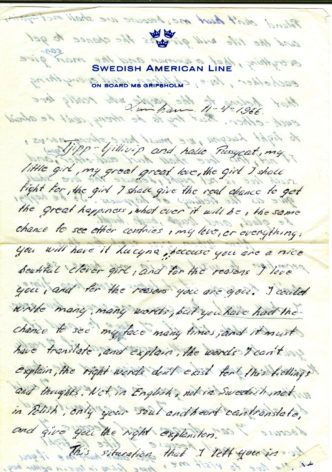 SWEDISH AMERICAN LINE
ON BOARD MS GRIPSHOLM
11-V-1966
and hallo Pussycat, my
little girl, my great great love, the girl I shall
fight for, the girl I shall give the real chance to get
the great happiness, what ever it will be, the same
chance to see other contries, my love, or everything,
you will have it Lucyna, because you are a nice
beatiful clever girl, and for the reasons I love
you, and for the reasons you are you. I could
write many, many words, but you have had the
chance to see my face many times, and it must
have translate, and explain, the words I can't
explain, the right words don't exist for this fellings
and thoughts. Not in English, not in Swedish, not
in Polish, only your soul and heart can translate,
and give you the right
This situation that I left you in